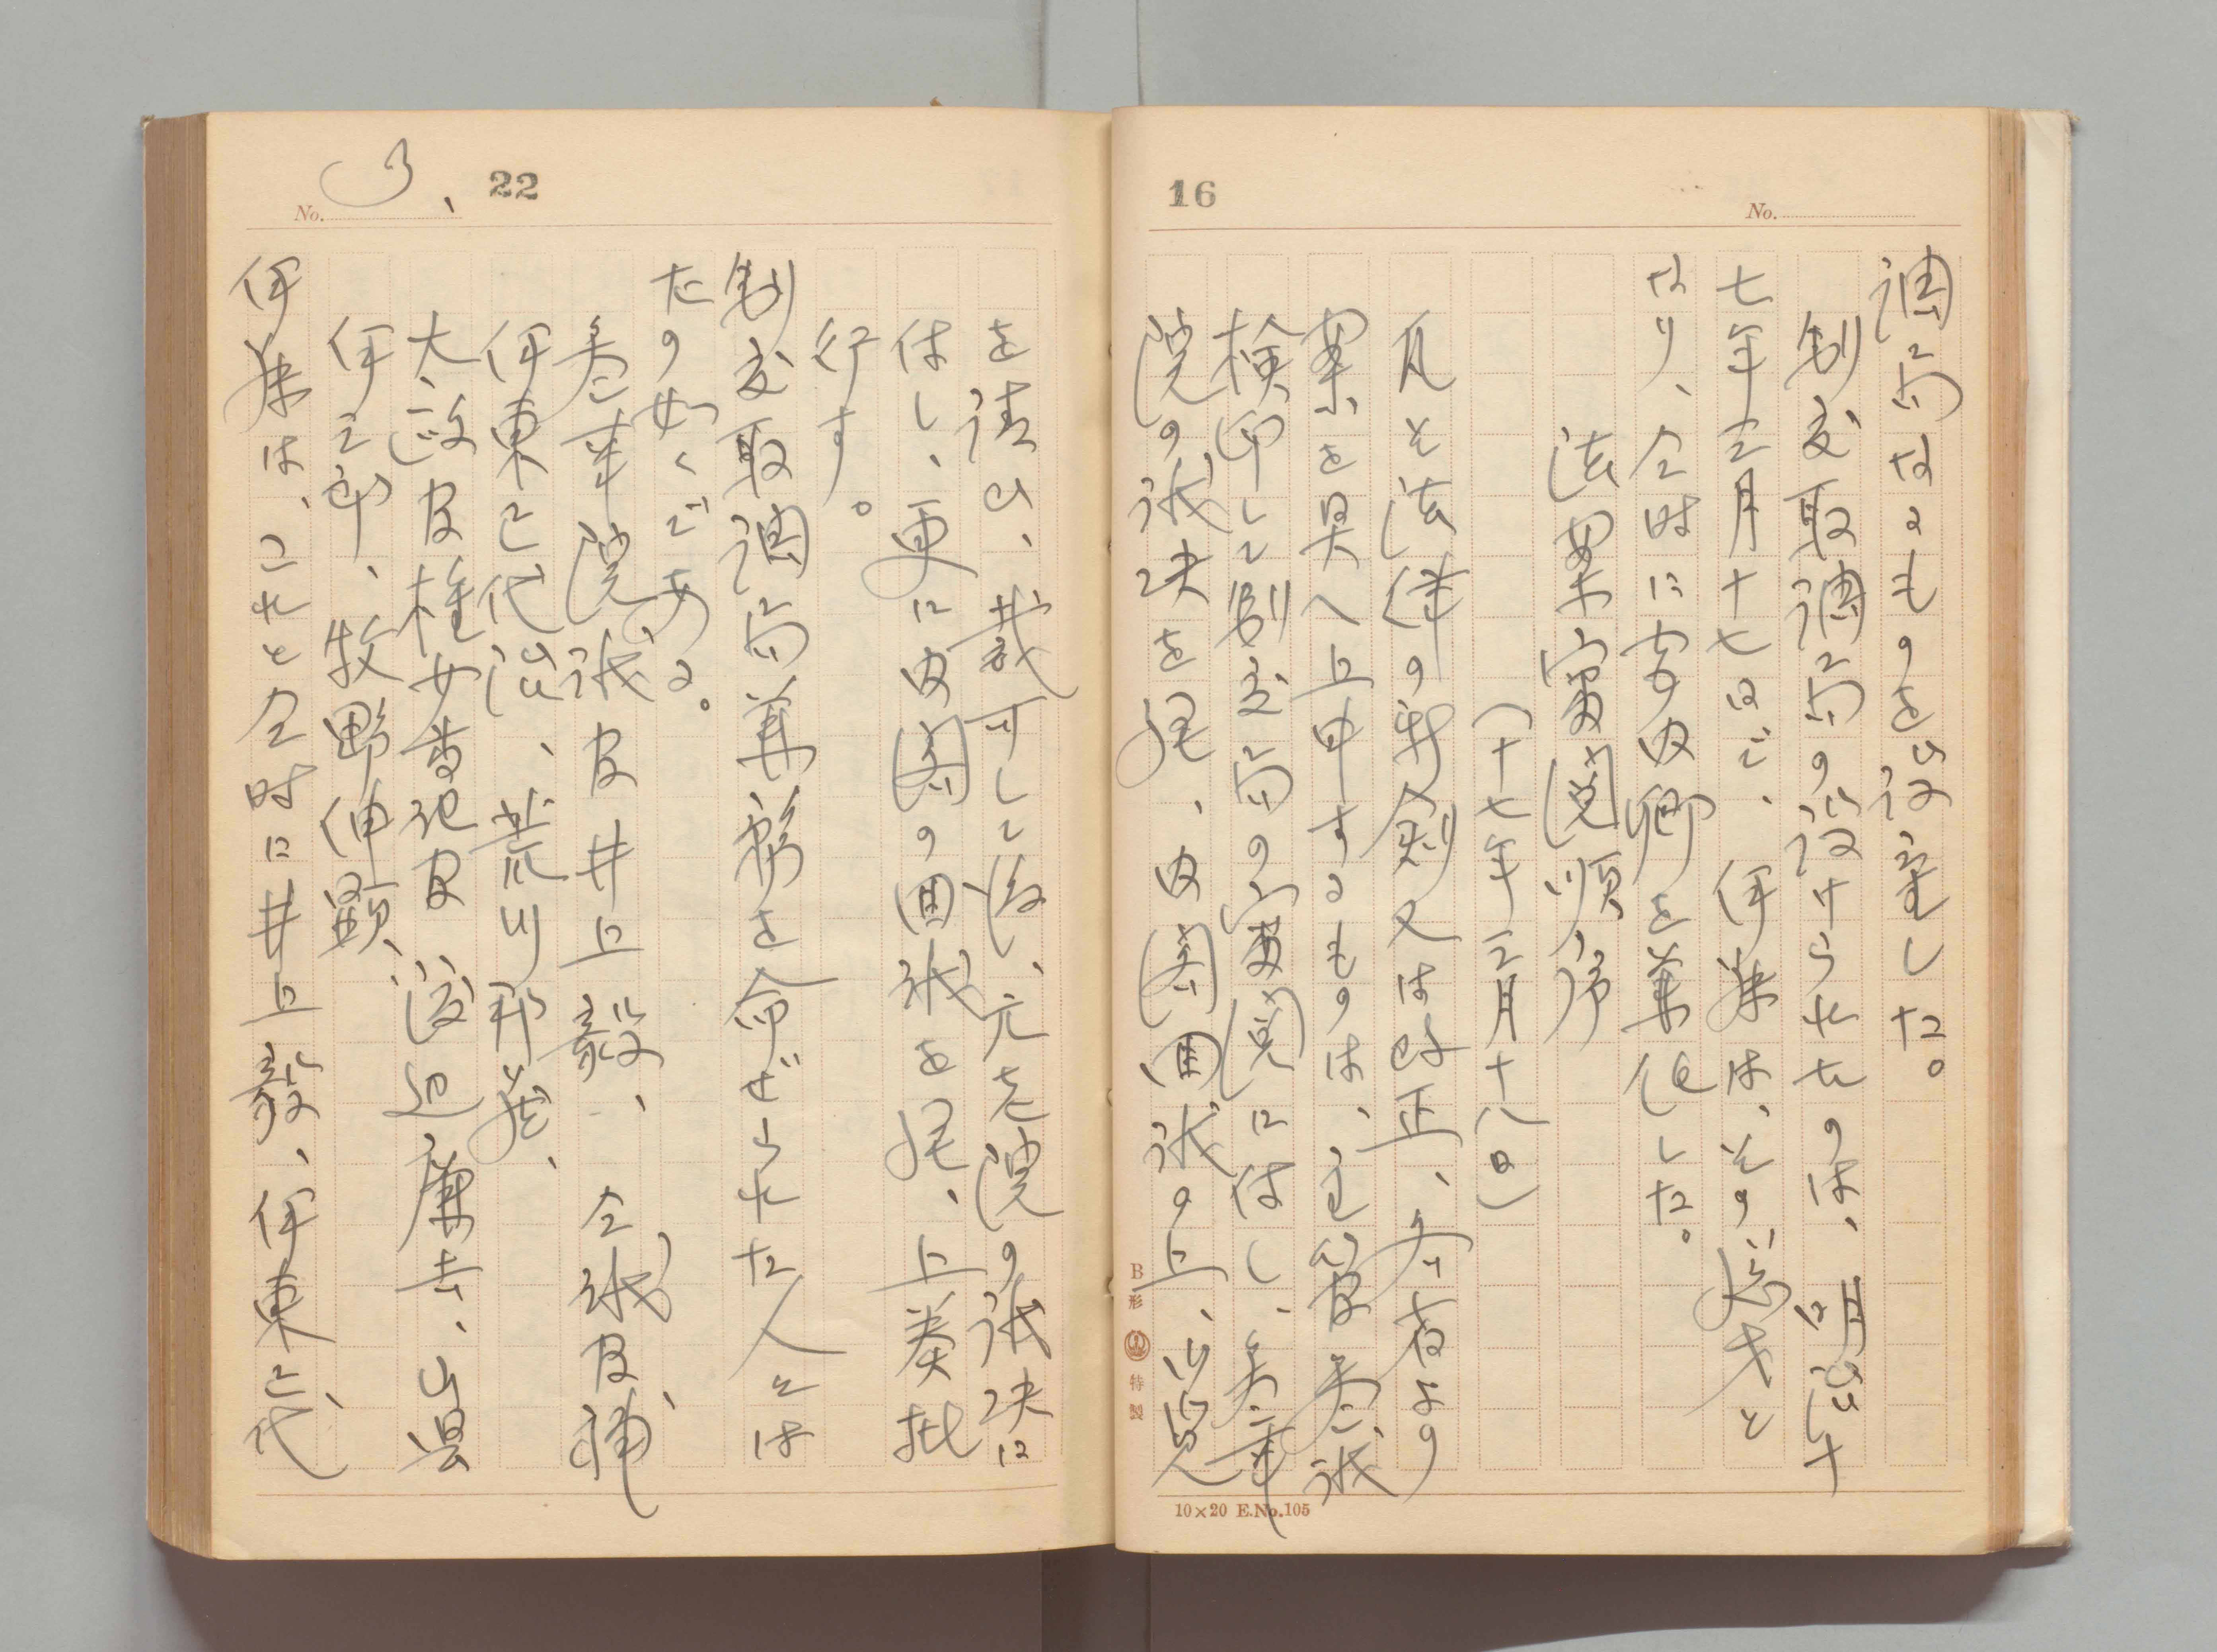 16
No.
調局なるものを設立した。
制度取調局の設けられたのは、明治十
七年三月十七日で、伊藤は、その長官と
なり、仝時に宮内卿を兼任した。
法案審閲順序
(十七年三月十八日)
凡そ法律の新創又は改正、各省より
案を具へ上申するものは、主管参議
検印して制度局の審閲に付し、参事
院の議決を経、内閣回議の上、御覧
B形 特製
10×20 E.No.105
No. 3、 22
を請ひ、裁可して後、元老院の議決に
付し、更に内閣の回議を経、上奏批
行す。
制度取調局兼務を命ぜられた人々は
左の如くである。
参事院議官井上毅、仝議官補
伊東巳代治、荒川邦蔵、
太政官権少書記官 渡辺廉吉、山県
伊三郎、牧野伸顕、
伊藤は、これと仝時に井上毅、伊東巳代